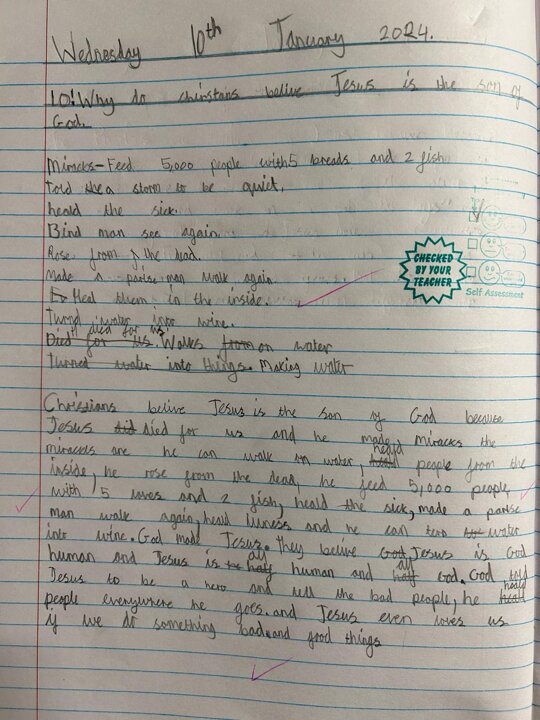 Wednesday 10th January 2024.
LO: Why do chirstans belive Jesus is the son of
God.
Miracks- Feed 5,000 people with 5 breads and 2 fish
told the a storm to be quiet,
heald the sick.
Bind man see again.
Rose from the dead.
made a parise man walk again.
Heal them in the inside.
CHECKED
BY YOUR
TEACHER
Self Assessment
Turnd water into wine.
it died for us.
Died for us. Walks from on water
Turned water into things. Making water
Christians belive Jesus is the son of God because
Jesus did died for us and he made miracks the
miracks are he can walk on water, heald people from the
inside, he rose from the dead, he feed 5,000 people
with 5 loves and 2 fish, heald the sick, made a parise
man walk again, heald and he can turn water
into wine. God made Jesus. they belive God Jesus is God
human and Jesus is the half all human and half all God. God told
Jesus to be a hero and tell the bad people, he heald heald
people everywhere he goes. and Jesus even loves us
if we do something bad and good things